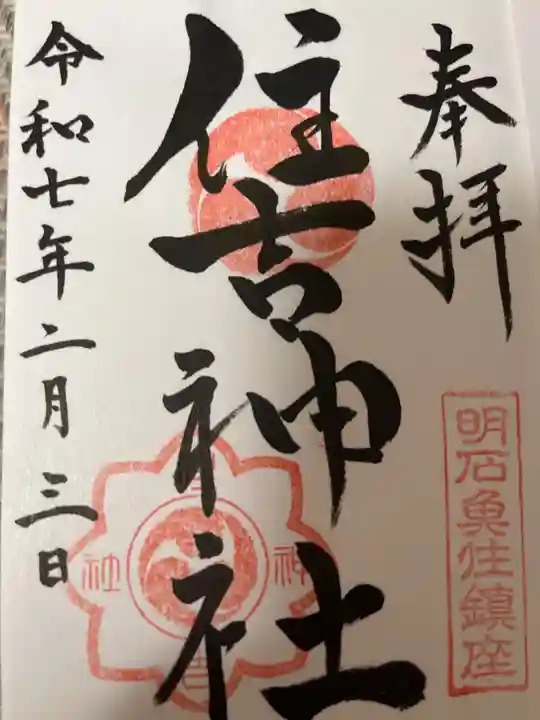 奉拝
明石魚住鎮座
住吉神社
神
社
令和七年二月三日